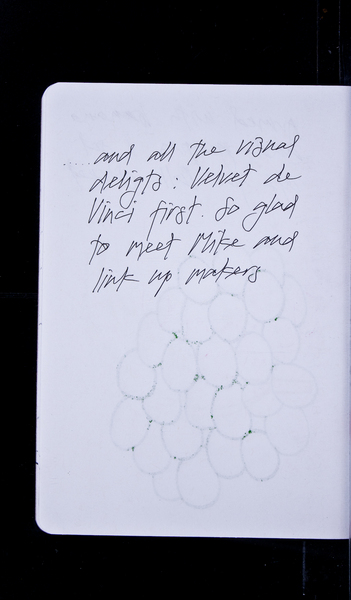 .....and all the visual
deligts : Velvet de
Vinci first. So glad
to meet Mike and
link up makers